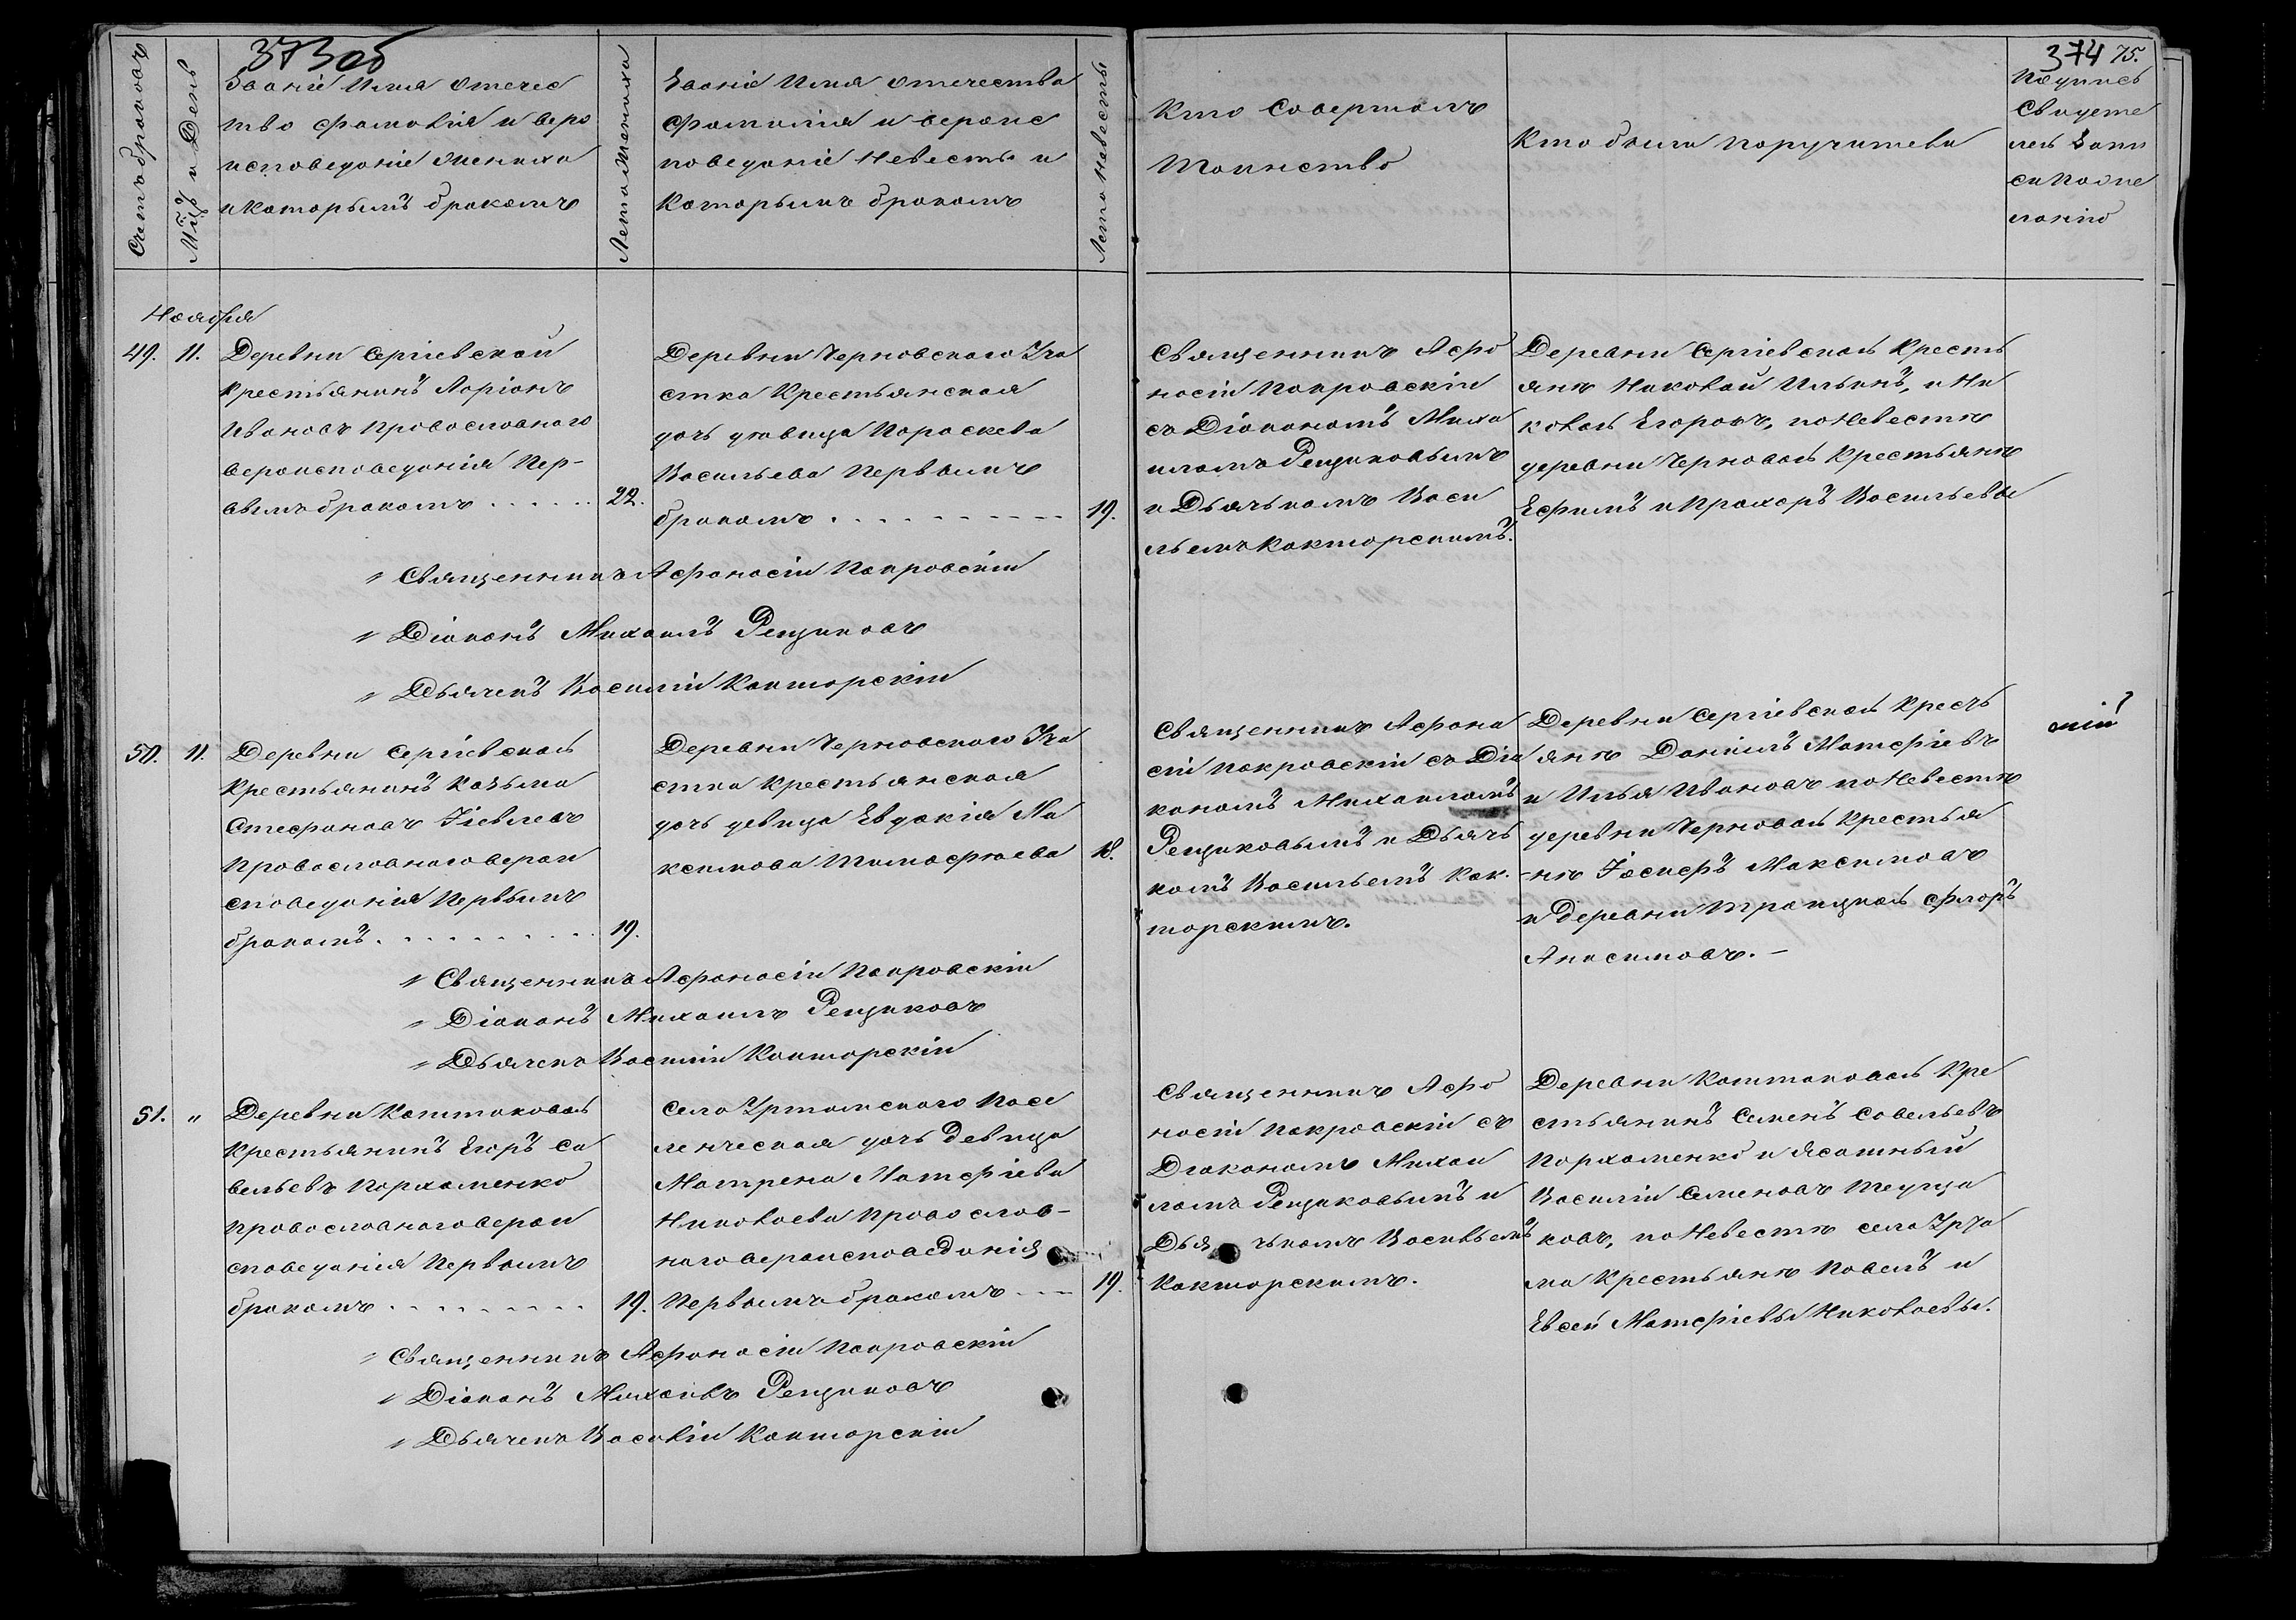 373 об
Счетъ браковъ
Мцъ и День
Званіе Имя Отечес
тво Фамилія и веро
исповеданіе Жениха
и которымъ бракомъ
Лета Жениха
Званіе Имя Отечества
Фамилія и вероис
поведаніе Невесты и
которымъ бракомъ
Лета Невесты
Кто Совершалъ
Таинство
Кто были поручители
374 75.
Подпись
Свидете
лей Запи
си По же
ланію
Ноября
49. 11. Деревни Сергіевской
крестьянинъ Ларіонъ
Ивановъ Православнаго
вероисповеданія Пер-
вымъ бракомъ . . . . . . 22.
Деревни Черновского Уча
стка Крестьянская
дочь девица Параскева
Васильева Первымъ
бракомъ . . . . . . . . . . 19.
Священникъ Афа
насій Покровскій
съ Діакономъ Миха
иломъ Рещиковымъ
и Дьячькомъ Васи
льемъ Конторскимъ.
Деревни Сергіевской Кресть
яне Николай Ильинъ, и Ни
колай Егоровъ, по Невесте
деревни Черновой Крестьяне
Ефимъ и Прохоръ Васильевы
Священникъ Афанасій Покровскій
Діаконъ Михаилъ Рещиковъ
Дьячекъ Василій Конторскій
50. 11. Деревни Сергіевской
Крестьянинъ Козьма
Стефановъ Іевлевъ
Православнаго верои
споведанія Первымъ
бракомъ. . . . . . . . . . 19.
Деревни Черновского Уча
стка Крестьянская
дочь девица Евдокія Ма
ксимова Тимофеева 18.
Священникъ Афана
сій Покровскій съ Діа
кономъ Михаиломъ
Рещиковымъ и Дьячь
комъ Васильемъ Кон-
торскимъ.
Деревни Сергіевской Кресть
яне Данилъ Матфіевъ
и Илья Ивановъ по Невесте
деревни Черновой Крестья
-не Іосифъ Максимовъ
и Деревни Троицкой Флоръ
Анисимовъ. –
Священникъ Афанасій Покровскій
Діаконъ Михаилъ Рещиковъ
Дьячекъ Василій Конторскій
51. " Деревни Каштаковой
Крестьянинъ Егоръ Са
вельевъ Пархоменко
Православнаго верои
споведанія Первымъ
бракомъ . . . . . . . . . 19.
Села Уртамского Посе
ленческая дочь Девица
Матрена Матфіева
Николаева Православ-
наго вероисповеданія
Первымъ бракомъ . . . 19.
Священникъ Афа
насій Покровскій съ
Діакономъ Михаи
ломъ Рещиковымъ и
Дья чькомъ Васильемъ
Конторскимъ.
Деревни Каштаковой Кре
стьянинъ Семенъ Савельевъ
Пархоменко и Ясашный
Василій Семеновъ
ковъ, по Невесте села Урта
ма Крестьяне Павелъ и
Евсей Матфіевы Николаевы.
Священникъ Афанасій Покровскій
Діаконъ Михаилъ Рещиковъ
Дьячекъ Василій Конторскій